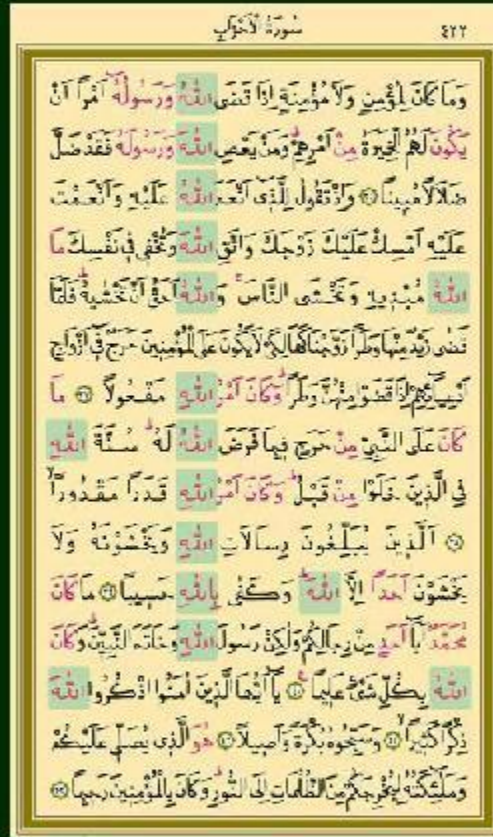 سُورَةُ الْاَحْزَابِ ٤٢٢
وَمَا كَانَ لِمُؤْمِنٍ وَلَا مُؤْمِنَةٍ اِذَا قَضَى اللّٰهُ وَرَسُولُهُٓ اَمْرًا اَنْ
يَكُونَ لَهُمُ الْخِيَرَةُ مِنْ اَمْرِهِمْۜ وَمَنْ يَعْصِ اللّٰهَ وَرَسُولَهُ فَقَدْ ضَلَّ
ضَلَالًا مُبِينًا ﴿٣٦﴾ وَاِذْ تَقُولُ لِلَّذِٓي اَنْعَمَ اللّٰهُ عَلَيْهِ وَاَنْعَمْتَ
عَلَيْهِ اَمْسِكْ عَلَيْكَ زَوْجَكَ وَاتَّقِ اللّٰهَ وَتُخْفِي فِي نَفْسِكَ مَا
اللّٰهُ مُبْدِيهِ وَتَخْشَى النَّاسَۚ وَاللّٰهُ اَحَقُّ اَنْ تَخْشٰيهُۜ فَلَمَّا
قَضٰى زَيْدٌ مِنْهَا وَطَرًا زَوَّجْنَاكَهَا لِكَيْ لَا يَكُونَ عَلَى الْمُؤْمِنِينَ حَرَجٌ فِٓي اَزْوَاجِ
اَدْعِيَٓائِهِمْ اِذَا قَضَوْا مِنْهُنَّ وَطَرًاۜ وَكَانَ اَمْرُ اللّٰهِ مَفْعُولًا ﴿٣٧﴾ مَا
كَانَ عَلَى النَّبِيِّ مِنْ حَرَجٍ فِيمَا فَرَضَ اللّٰهُ لَهُۜ سُنَّةَ اللّٰهِ
فِي الَّذِينَ خَلَوْا مِنْ قَبْلُۜ وَكَانَ اَمْرُ اللّٰهِ قَدَرًا مَقْدُورًاۙ
﴿٣٨﴾ اَلَّذِينَ يُبَلِّغُونَ رِسَالَاتِ اللّٰهِ وَيَخْشَوْنَهُ وَلَا
يَخْشَوْنَ اَحَدًا اِلَّا اللّٰهَۜ وَكَفٰى بِاللّٰهِ حَسِيبًا ﴿٣٩﴾ مَا كَانَ
مُحَمَّدٌ اَبَٓا اَحَدٍ مِنْ رِجَالِكُمْ وَلٰكِنْ رَسُولَ اللّٰهِ وَخَاتَمَ النَّبِيِّنَۜ وَكَانَ
اللّٰهُ بِكُلِّ شَيْءٍ عَلِيمًا ﴿٤٠﴾ يَٓا اَيُّهَا الَّذِينَ اٰمَنُوا اذْكُرُوا اللّٰهَ
ذِكْرًا كَثِيرًاۙ ﴿٤١﴾ وَسَبِّحُوهُ بُكْرَةً وَاَصِيلًا ﴿٤٢﴾ هُوَ الَّذِي يُصَلِّي عَلَيْكُمْ
وَمَلٰٓئِكَتُهُ لِيُخْرِجَكُمْ مِنَ الظُّلُمَاتِ اِلَى النُّورِۜ وَكَانَ بِالْمُؤْمِنِينَ رَحِيمًا ﴿٤٣﴾